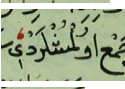 جمع اولمشلردی